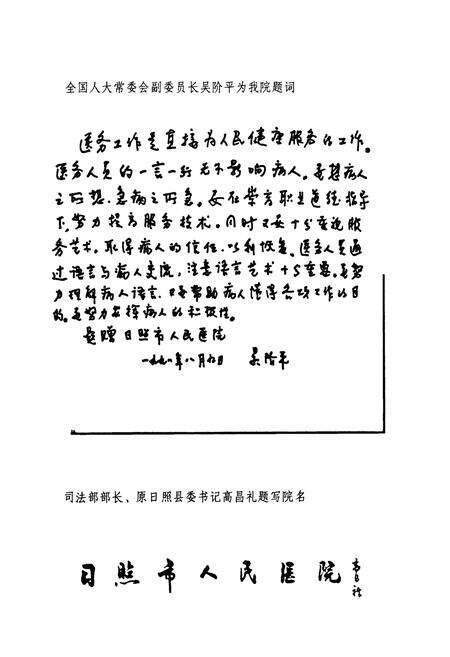 全国人大常委会副委员长吴阶平为我院题词
医务工作是直接为人民健康服务的工作。
医务人员的一言一行无不影响病人。要想病人
之所想、急病人之所急。要在崇高职业道德指导
下,努力提高服务技术。同时又要十分重视服
务艺术,取得病人的信任,以利恢复。医务人员通
过语言与病人交流,注意语言艺术十分重要。要努
力理解病人语言,又要帮助病人懂得各项工作的目
的。要努力发挥病人的积极性。
题赠日照市人民医院
一九九八年八月九日 吴阶平
司法部部长、原日照县委书记高昌礼题写院名
日照市人民医院 高昌礼